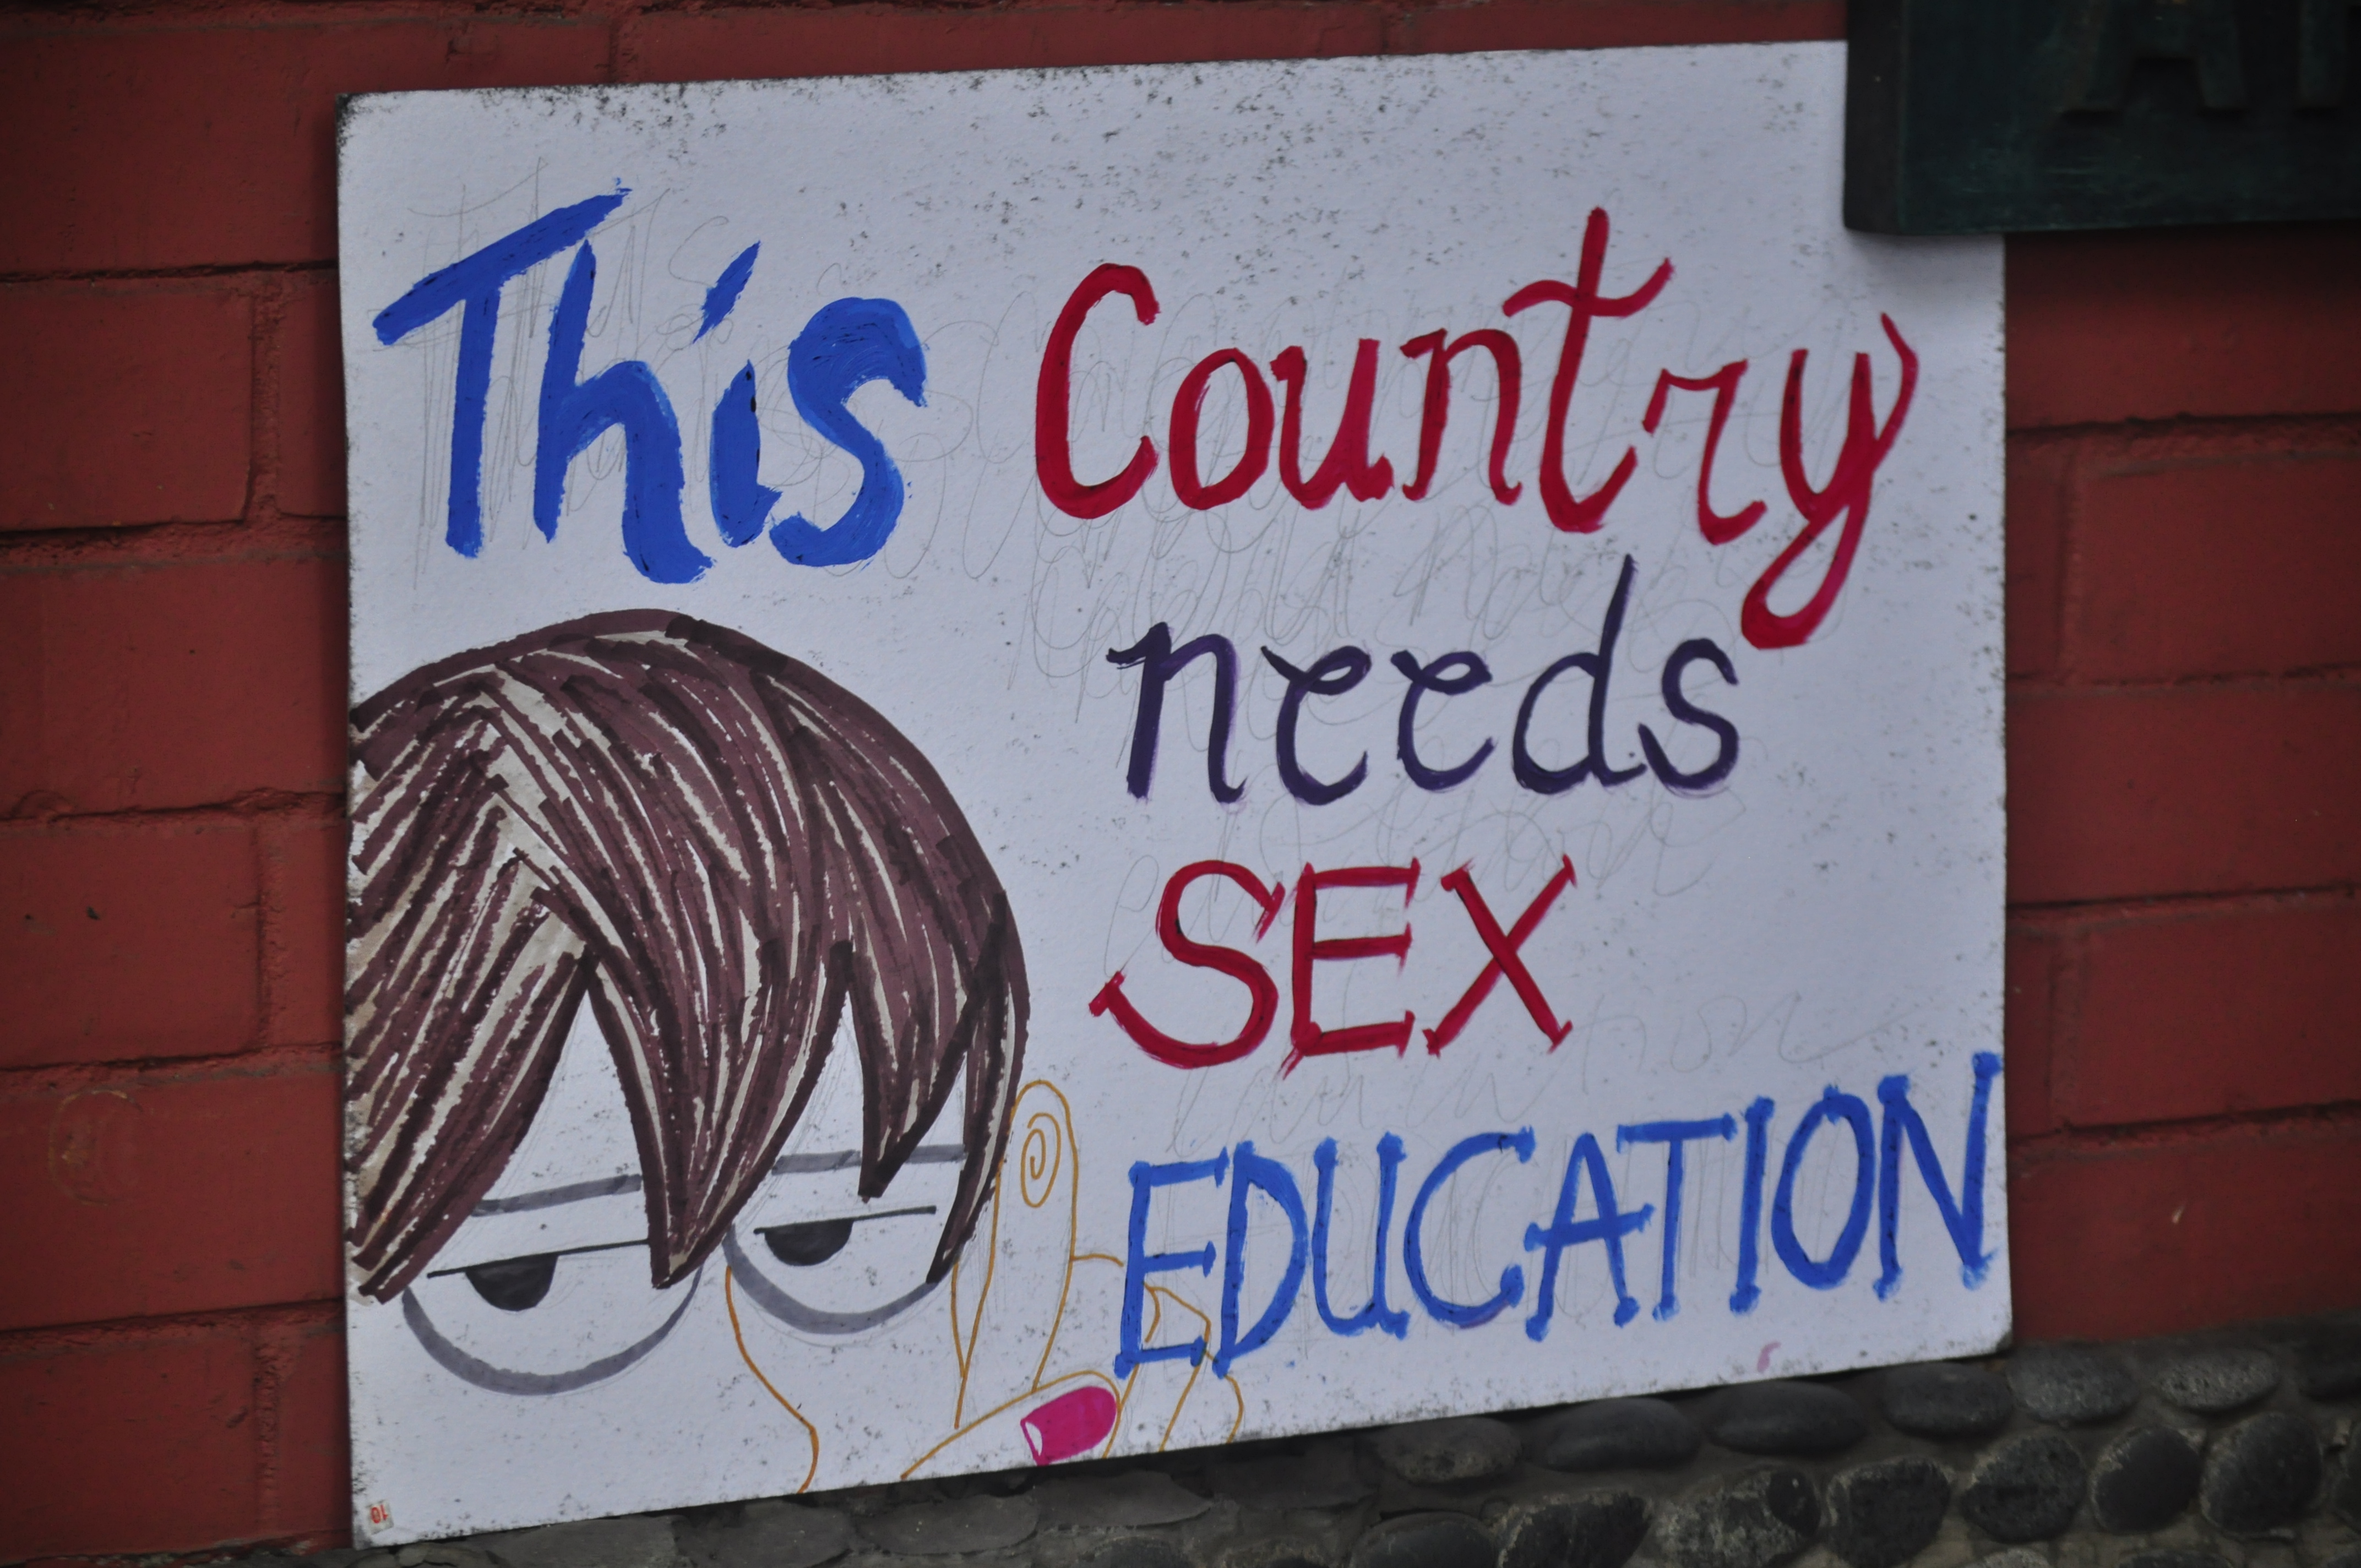 This Country
needs
SEX
EDUCATION